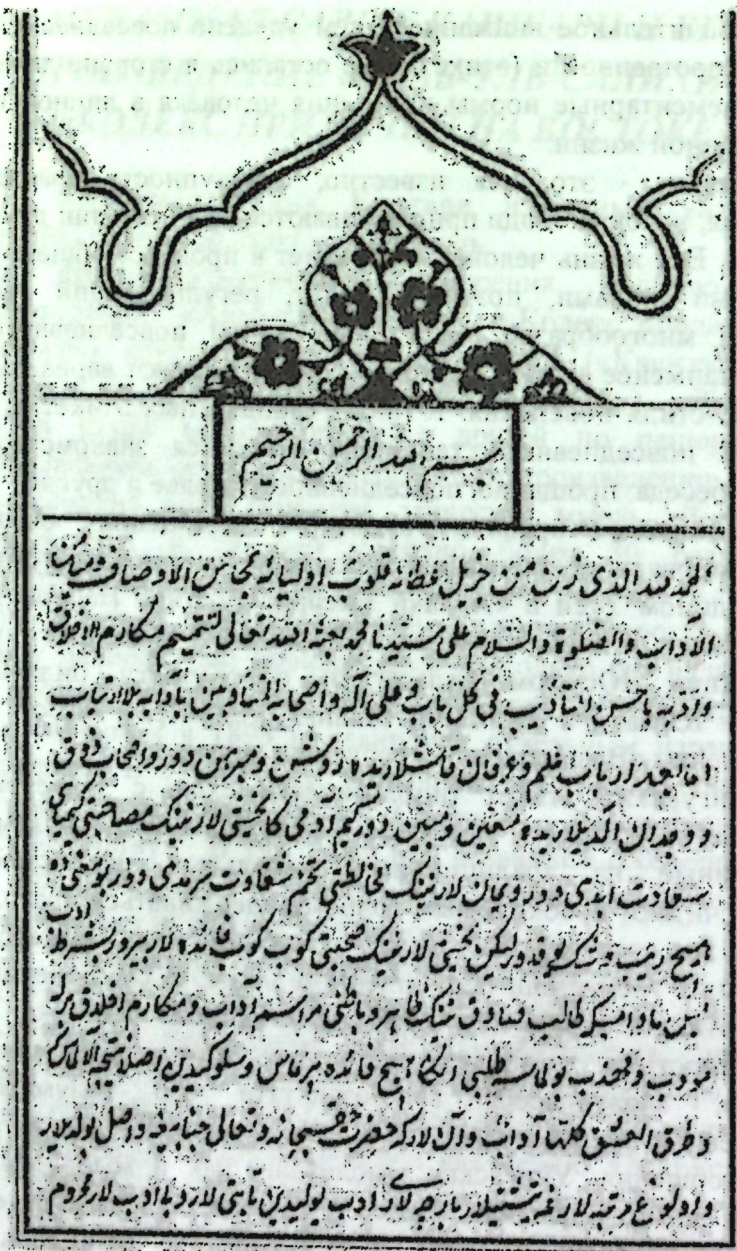 بسم الله الرحمن الرحيم
الحمد لله الذي زين من قلوب اوليائه بمحاسن الاوصاف
الآداب والصلوة والسلام على سيدنا محمد بعثه الله تعالى لتتميم مكارم الاخلاق
وادبه باحسن التأديب في كل باب وعلى آله واصحابه المتأدبين بآدابه بلا ارتياب
اما بعد ارباب علم وعرفان قاشلاريده روشن ومبرهن دور واصحاب ذوق
ووجدان الديلاريده متعين ومبين دور كيم آدمى كا يخشى لارنينك مصاحبتى كيمياى
سعادت ابدى دور ويمان لارنينك مخالطتى تخم شقاوت سرمدى دور بو معنى ده
هيچ ريب وشك يوقدور ليكن يخشى لارنينك صحبتى كوب كوب فائده لار بيرور بشرط ادب
مراسم آداب ومكارم اخلاق برله
مودب ومهذب بولماسه طلبى انكا هيچ فائده بيرماس وسلوكيدين اصلا نتيجه آلالماس
وطرق العشق كلها آداب وآن لاركه حضرت حق سبحانه وتعالى جنابيغه واصل بولديلار
واولوغ مرتبه لارغه يتيشتيلار بارچه لارى ادب يوليدين تابتى لار وبى ادب لار محروم